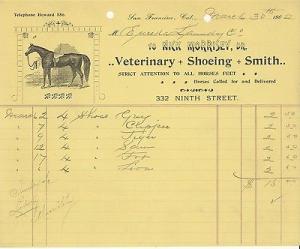 Telephone Howard 486.
San Francisco, Cal., March 30th 190
M Eureka Laundry Co
TO NICK MORRISEY, DR.
..Veterinary + Shoeing + Smith..
STRICT ATTENTION TO ALL HORSES FEET
Horses Called for and Delivered
332 NINTH STREET.
March 2 4 Shoes Grey 2 50
4 4 2 50
6 4 Tiger 2 50
12 4 2 50
17 4 Fox 2 50
4 2 50
$ 15